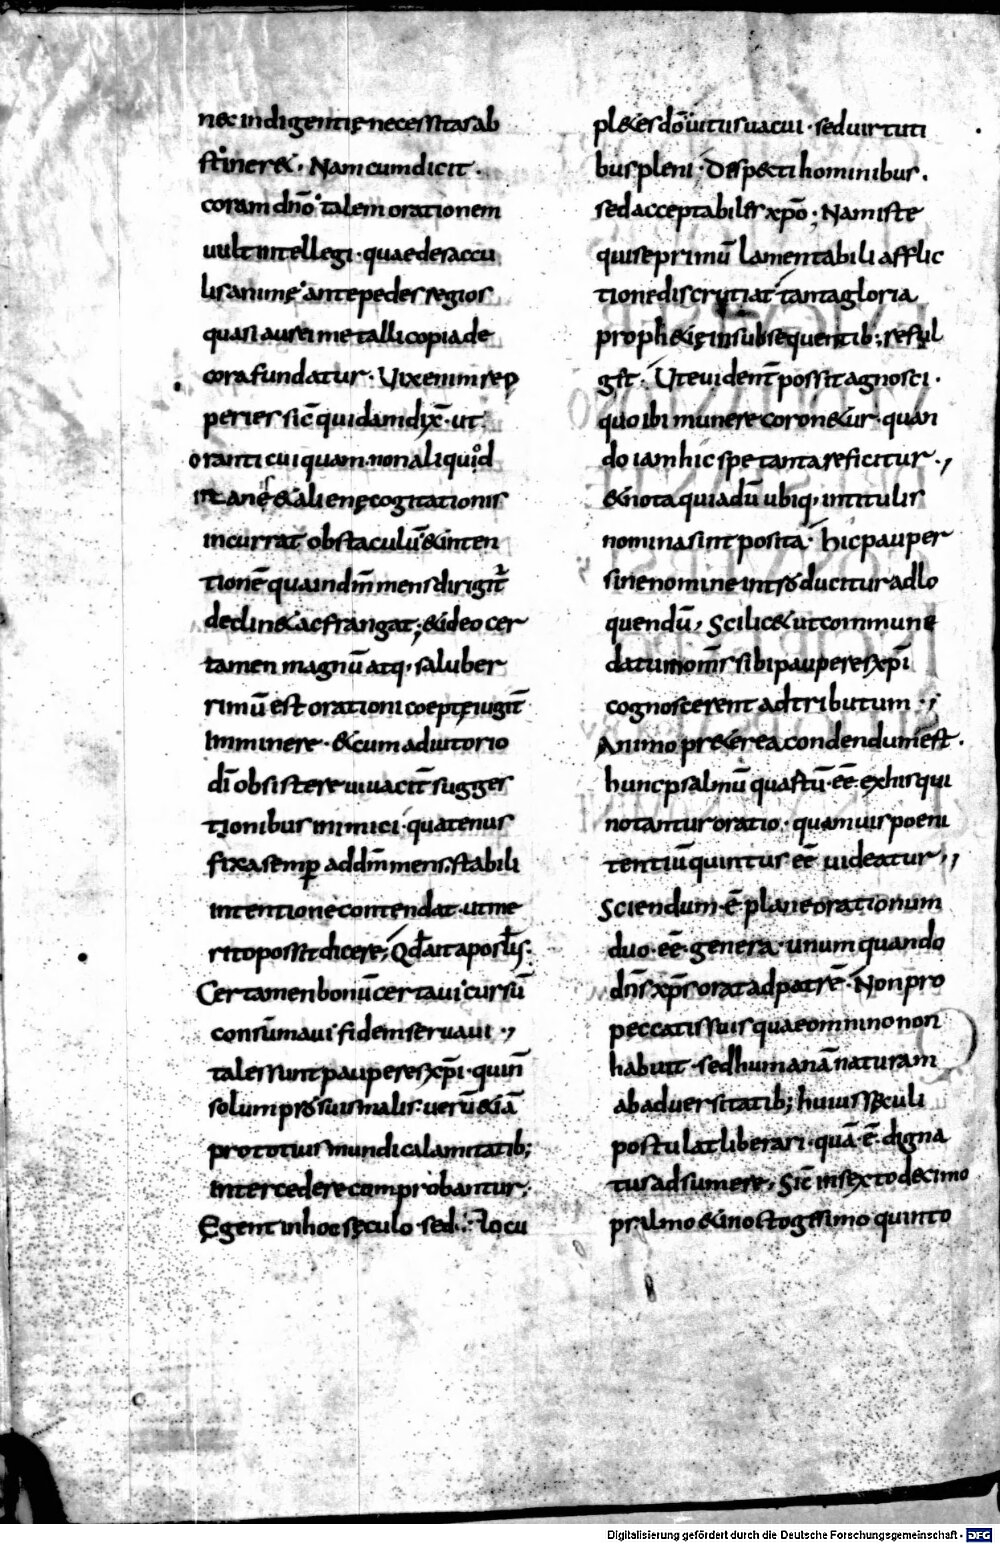 nec indigentię necessitas ab
stiner&. Nam cum dicit.
coram dnō talem orationem
uult intellegi. quae de saccu
lis animę ante pedes regios
quasi aurei metalli copia de
cora fundatur. Uix enim rep
peries sic̄ quidam dix̄. ut
oranti cuiquam. non aliquod
inane & alienę cogitationis
incurrat obstaculū & inten
tionē qua in dn̄m mens dirigit̄
declin& ac frangat; & ideo cer
tamen magnū atq, saluber
rimū est orationi coeptę iugit̄
imminere. & cum adiutorio
dī obsistere uiuacit̄ sugges
tionibus inimici. quatenus
fixa semp ad dn̄m mens. stabili
intentione contendat. ut me
rito possit dicere; Qd̄ ait apostl̄s:
Certamen bonū certaui cursū
consūmaui fidem seruaui.,
tales sunt pauperes xp̄i. quin̄
solum pro suis malis. uerū &iā
pro totius mundi calamitatib;
intercedere comprobantur;
Egent in hoc sęculo sed locu
pl&es dō uitus uacui. sed uirtuti
bus pleni. Despecti hominibus.
sed acceptabiles xp̄o; Nam iste
qui se primū lamentabili afflic
tione discrutiat tanta gloria
proph&ię in subsequentib; reful
git. Ut euident̄ possit agnosci.
quo ibi munere coron&ur. quan
do iam hic spe tanta reficitur.,
& nota quia dū ubiq, in titulis
nomina sint posita. hic pauper
sine nomine introducitur ad lo
quendū, Scilic& ut commune
datum om̄s sibi pauperes xp̄i
cognoscerent adtributum.,;
Animo pr&erea condendum est.
hunc psalmū quartū. eē. ex his qui
notantur oratio. quamuis poeni
tentiū quintus eē uideatur,,
Sciendum. ē. plane orationum
duo. eē. genera. unum quando
dn̄s xp̄s orat ad patrē. Non pro
peccatis suis quae omnino non
habuit. sed humanā naturam
ab aduersitatib; huius sęculi
postulat liberari. quā. ē. digna
tus adsumere, Sic̄ in sexto decimo
psalmo & in octogesimo quinto
Digitalisierung gefördert durch die Deutsche Forschungsgemeinschaft - DFG